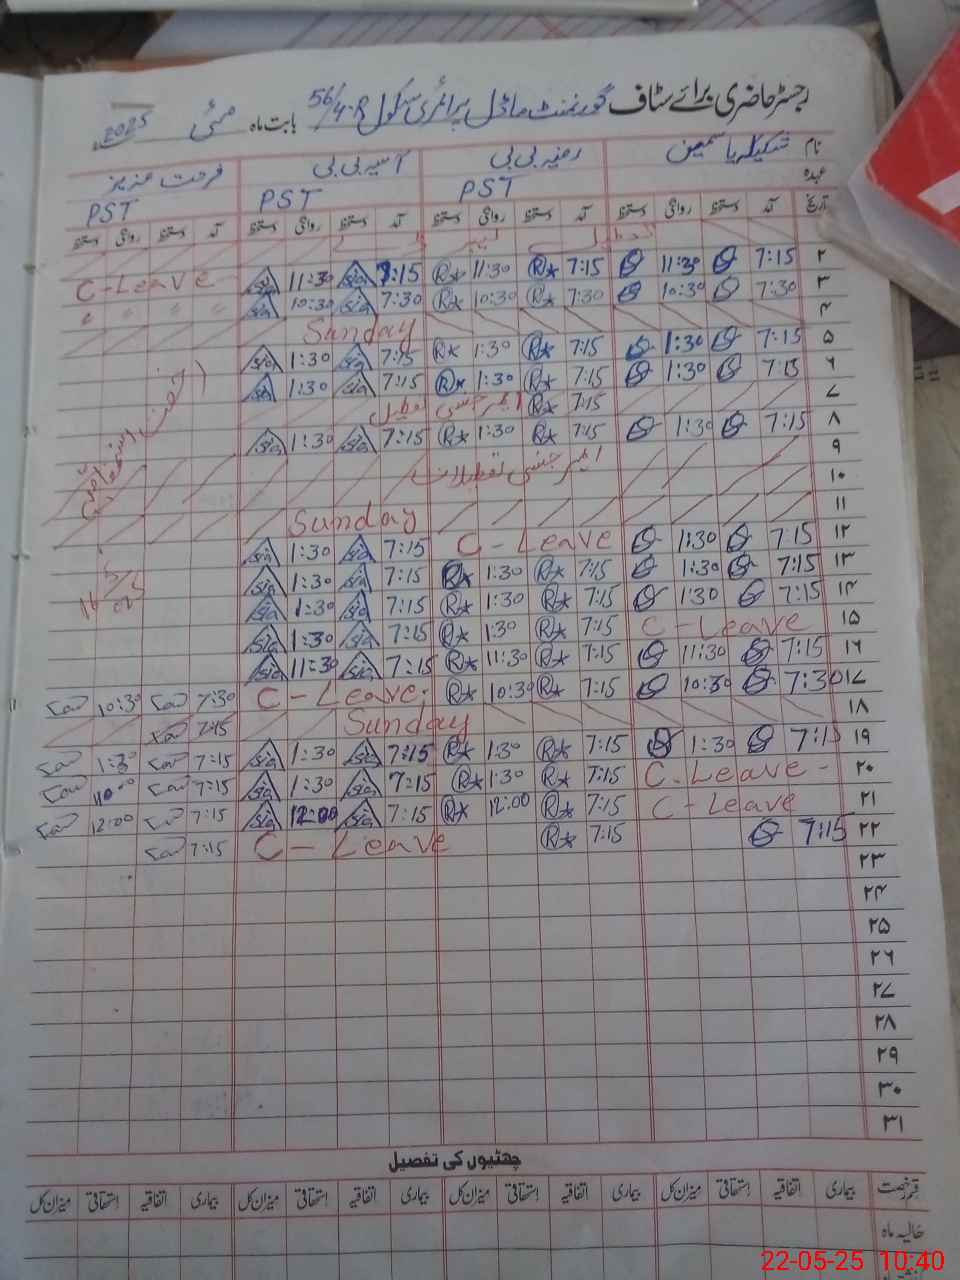 رجسٹر حاضری برائے سٹاف گورنمنٹ ماڈل پرائمری سکول 56/4-R بابت ماہ مئی 2025
نام شکیلہ یاسمین رضیہ بی بی آسیہ بی بی فرحت عزیز
عہدہ PST PST PST
تاریخ آمد دستخط روانگی دستخط آمد دستخط روانگی دستخط آمد دستخط روانگی دستخط آمد دستخط روانگی دستخط
۲ 7:15 11:30 7:15 R* 11:30 R* 7:15 11:30 C-Leave
۳ 7:30 10:30 7:30 R* 10:30 R* 7:30 10:30 " " " "
۴ Sunday
۵ 7:15 1:30 7:15 R* 1:30 R* 7:15 1:30
۶ 7:15 1:30 7:15 R* 1:30 R* 7:15 1:30
۷ 7:15 R* ایمرجنسی تعطیل
۸ 7:15 1:30 7:15 R* 1:30 R* 7:15 1:30
۹ ایمرجنسی تعطیلات
۱۰
۱۱ Sunday
۱۲ 7:15 1:30 C-Leave 7:15 1:30
۱۳ 7:15 1:30 7:15 R* 1:30 R* 7:15 1:30
۱۴ 7:15 1:30 7:15 R* 1:30 R* 7:15 1:30
۱۵ C-Leave 7:15 R* 1:30 R* 7:15 1:30
۱۶ 7:15 11:30 7:15 R* 11:30 R* 7:15 11:30
۱۷ 7:30 10:30 7:15 R* 10:30 R* C-Leave. 7:30 10:30
۱۸ Sunday 7:15
۱۹ 7:15 1:30 7:15 R* 1:30 R* 7:15 1:30 7:15 1:30
۲۰ C-Leave- 7:15 R* 1:30 R* 7:15 1:30 7:15
۲۱ C-Leave 7:15 R* 12:00 R* 7:15 12:00 7:15 12:00
۲۲ 7:15 7:15 R* C-Leave 7:15
۲۳
۲۴
۲۵
۲۶
۲۷
۲۸
۲۹
۳۰
۳۱
چھٹیوں کی تفصیل
قسم رخصت بیماری اتفاقیہ استحقاقی میزان کل بیماری اتفاقیہ استحقاقی میزان کل بیماری اتفاقیہ استحقاقی میزان کل
حالیہ ماہ
22-05-25 10:40